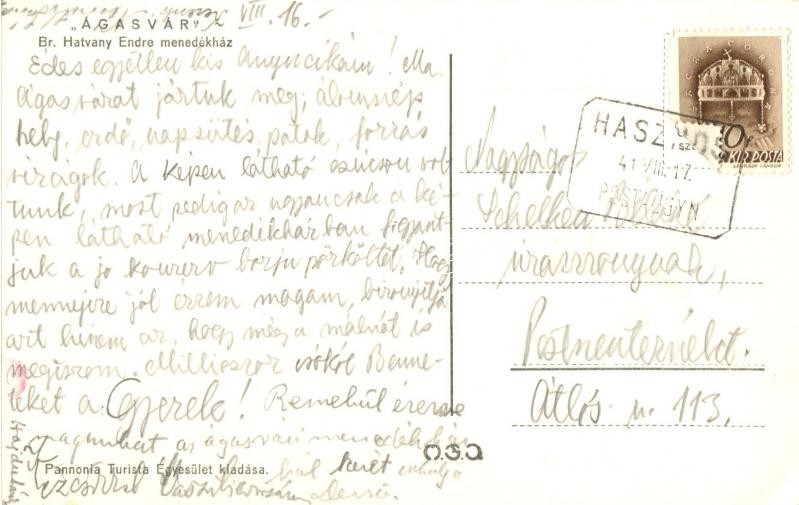 VIII. 16.
„ÁGASVÁR"
Br. Hatvany Endre menedékház
Édes egyetlen kis Anyucikám! Ma
Ágasvárat jártuk meg; álomszép
hely, erdő, napsütés, patak, forrás
virágok. A képen látható csúcson vol
tunk, most pedig az ugyancsak a ké-
pen látható menedékházban fogyaszt-
juk a jó konzerv borju pörköltet. Hogy
mennyire jól érzem magam, bizonyítja
azt hiszem az, hogy még a málnát is
megiszom. Milliószor csókol Benne-
teket a Gyerek! Remekül érezve
magunkat az ágasvári menedékház
kezét csókolja
Dezső.
Pannonia Turista Egyesület kiadása.
O.S.O
SACRA CORONA
KIR. POSTA
41 VIII. 17.
Nagyságos
úrasszonynak,
Pestszenterzsébet.
Átlós u. 113.